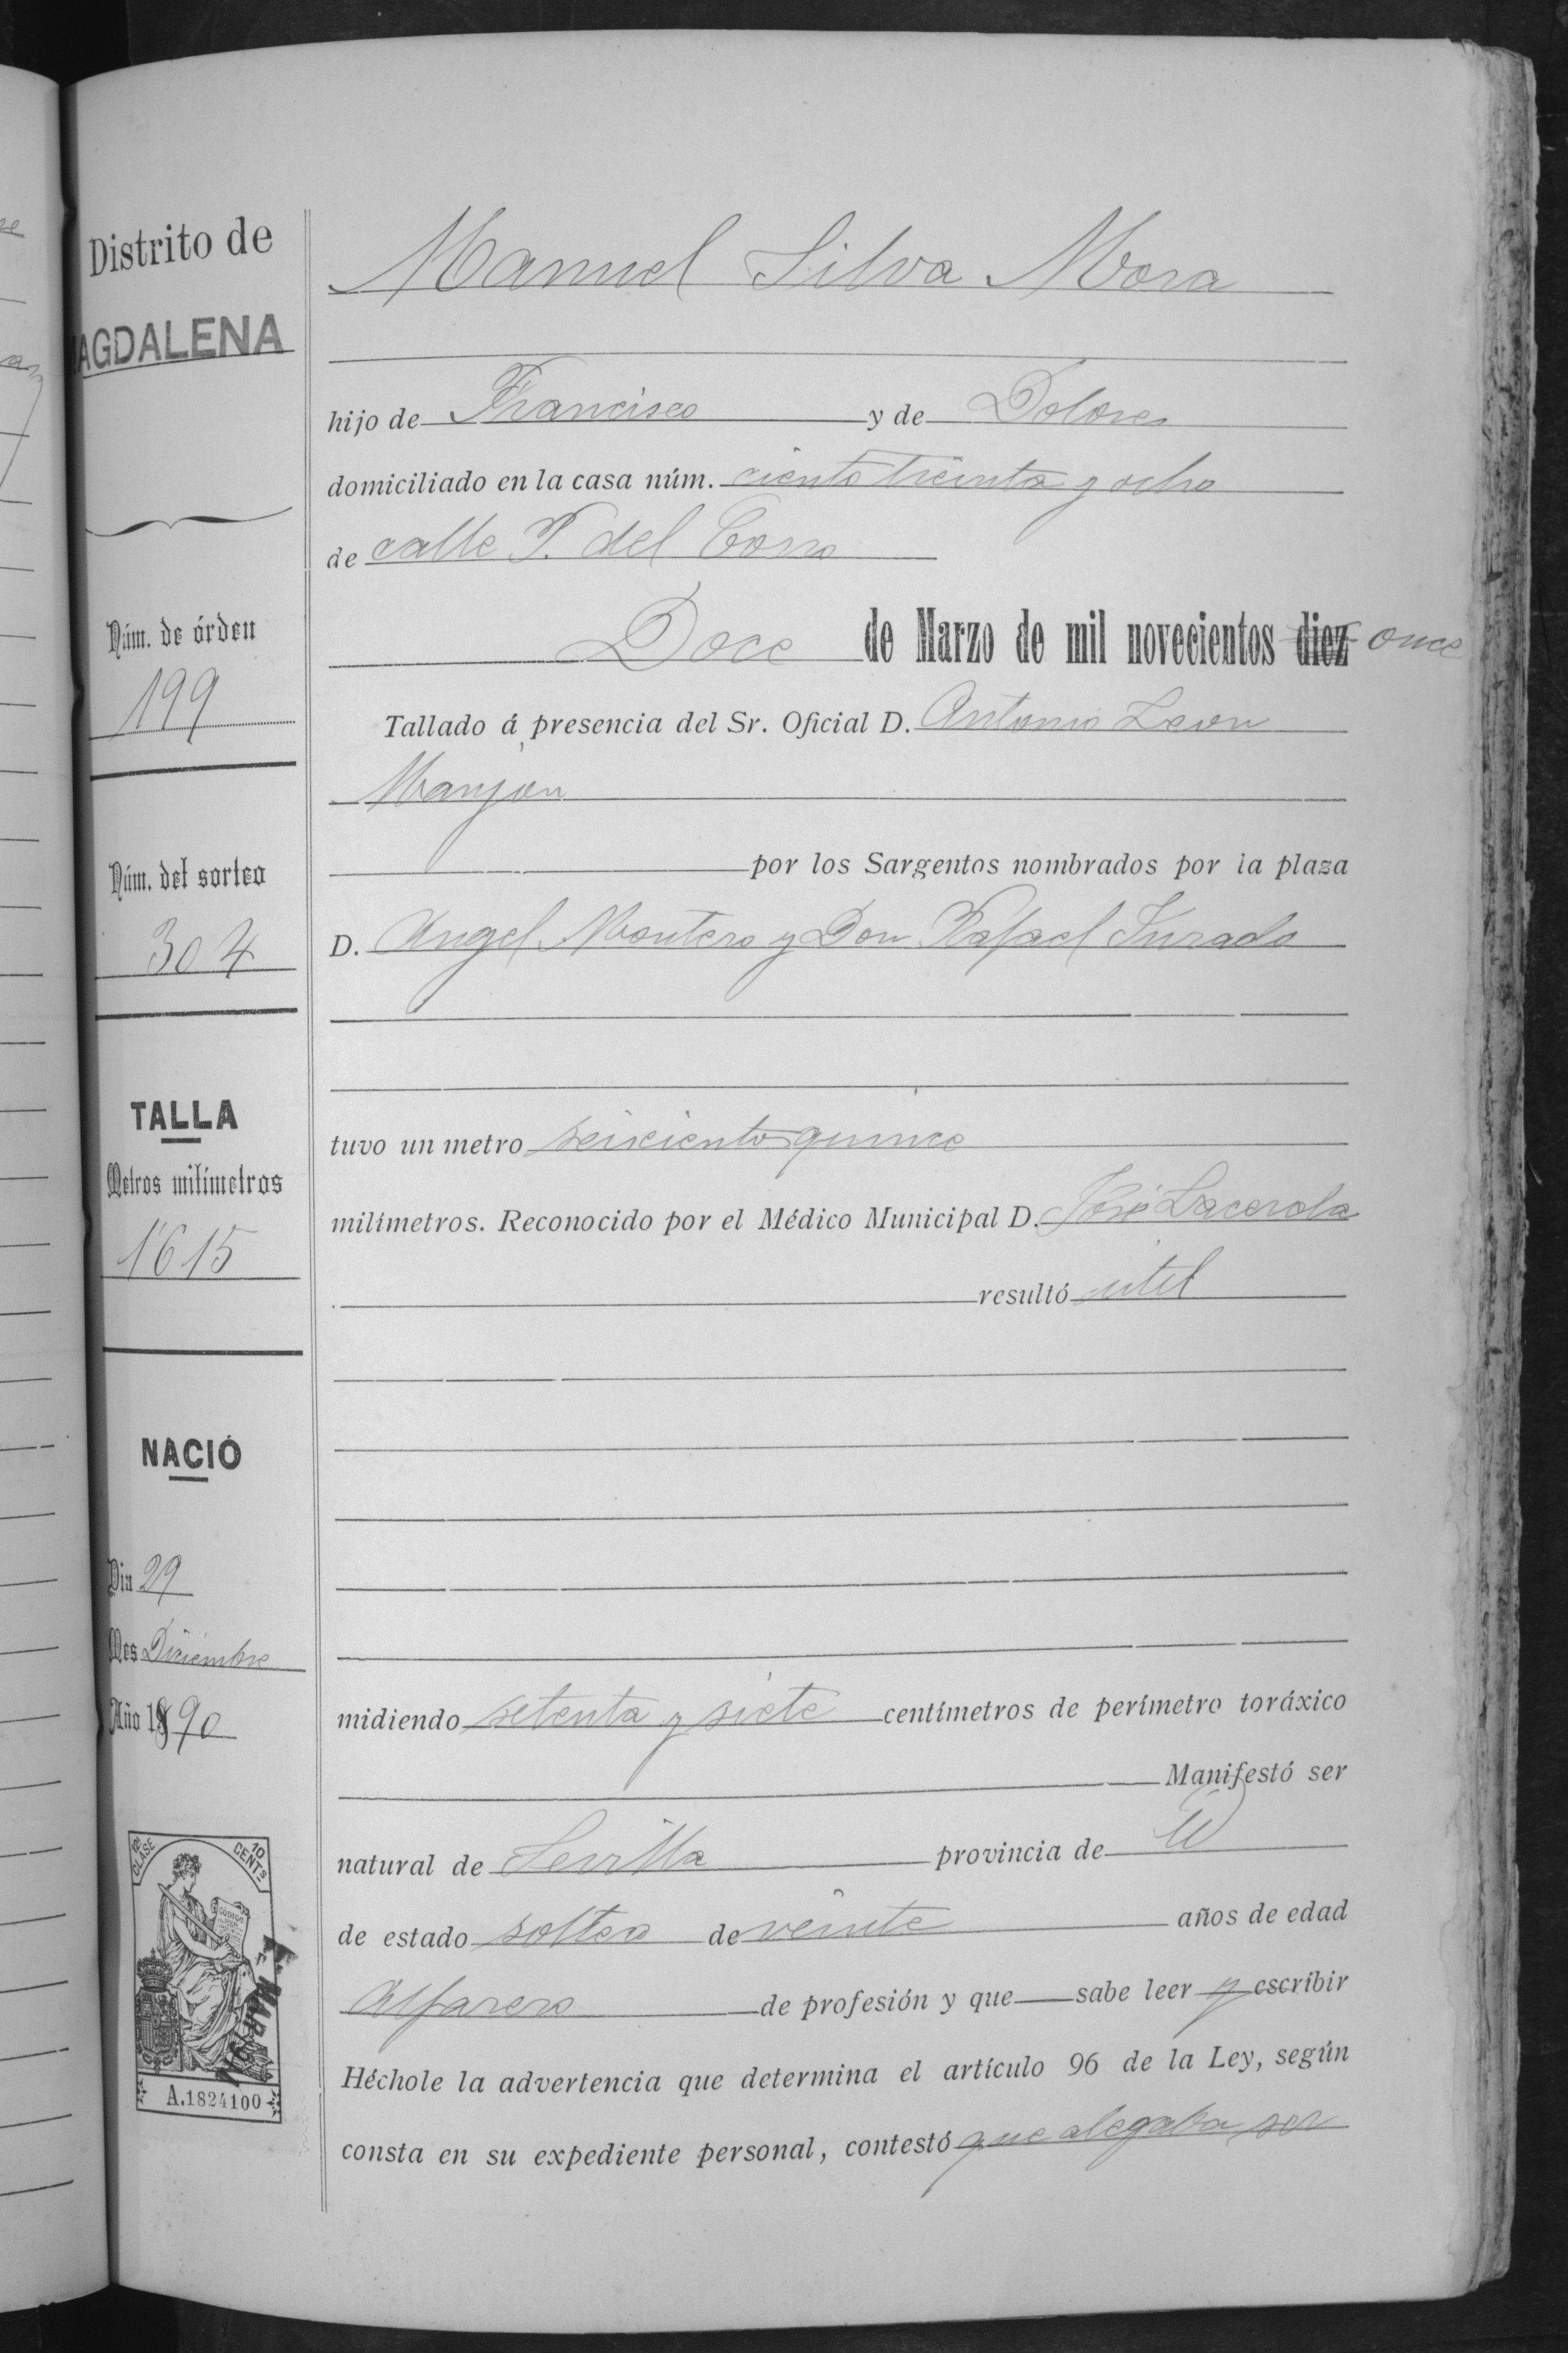 Distrito de
MAGDALENA
Núm. de órden
199
Núm. del sorteo
304
TALLA
Metros milímetros
1615
NACIÓ
Dia 29
Mes Diciembre
Año 1890
12ª CLASE
10 CENTs
A.1824100
Manuel Silva Mora
hijo de Francisco y de Dolores
domiciliado en la casa núm. ciento treinta y ocho
de calle P. del Corro
Doce de Marzo de mil novecientos diez once
Tallado á presencia del Sr. Oficial D. Antonio Leon
Manjon
por los Sargentos nombrados por la plaza
D. Angel Montero y Don Rafael Jurado
tuvo un metro seiscientos quince
milímetros. Reconocido por el Médico Municipal D. José Lacerda
resultó útil
midiendo setenta y siete centímetros de perímetro toráxico
Manifestó ser
natural de Sevilla provincia de id
de estado soltero de veinte años de edad
Alfarero de profesión y que sabe leer y escribir
Héchole la advertencia que determina el artículo 96 de la Ley, según
consta en su expediente personal, contestó que alegaba ser